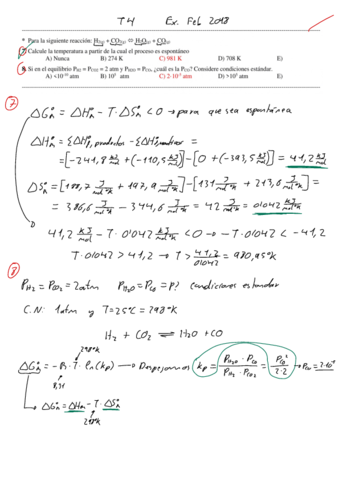 T4 Ex. Feb 2018
* Para la siguiente reacción: H₂(g) + CO₂(g) ⇔ H₂O(g) + CO(g)
7. Calcule la temperatura a partir de la cual el proceso es espontáneo
A) Nunca B) 274 K C) 981 K D) 708 K E)
8. Si en el equilibrio P_H2 = P_CO2 = 2 atm y P_H2O = P_CO, ¿cuál es la P_CO? Considere condiciones estándar.
A) <10⁻¹⁰ atm B) 10⁵ atm C) 2·10⁻² atm D) >10⁵ atm E)
7
ΔG°n = ΔH°n - T·ΔS°n < 0 → para que sea espontánea
ΔH°n = ΣΔH°f, productos - ΣΔH°f, reactivos =
= [-241,8 kJ/mol + (-110,5 kJ/mol)] - [0 + (-393,5 kJ/mol)] = 41,2 kJ/mol
ΔS°n = [188,7 J/mol°K + 197,9 J/mol°K] - [131 J/mol°K + 213,6 J/mol°K] =
= 386,6 J/mol°K - 344,6 J/mol°K = 42 J/mol°K = 0'042 kJ/mol°K
41,2 kJ/mol - T·0'042 kJ/mol°K < 0 → -T·0'042 < -41,2
T·0'042 > 41,2 → T > 41,2/0'042 = 980,95°K
8
P_H2 = P_CO2 = 2atm P_H2O = P_CO = P? condiciones estandar
C.N: 1atm y T=25°C = 298°K
H₂ + CO₂ ⇌ H₂O + CO
298°K
ΔG°n = -R·T·ln(kp) → Despejamos kp = P_H2O · P_CO / P_H2 · P_CO2 = P_CO² / 2·2 → P_CO = 2·10⁻²
8,31
ΔG°n = ΔHn - T·ΔS°n
298°K